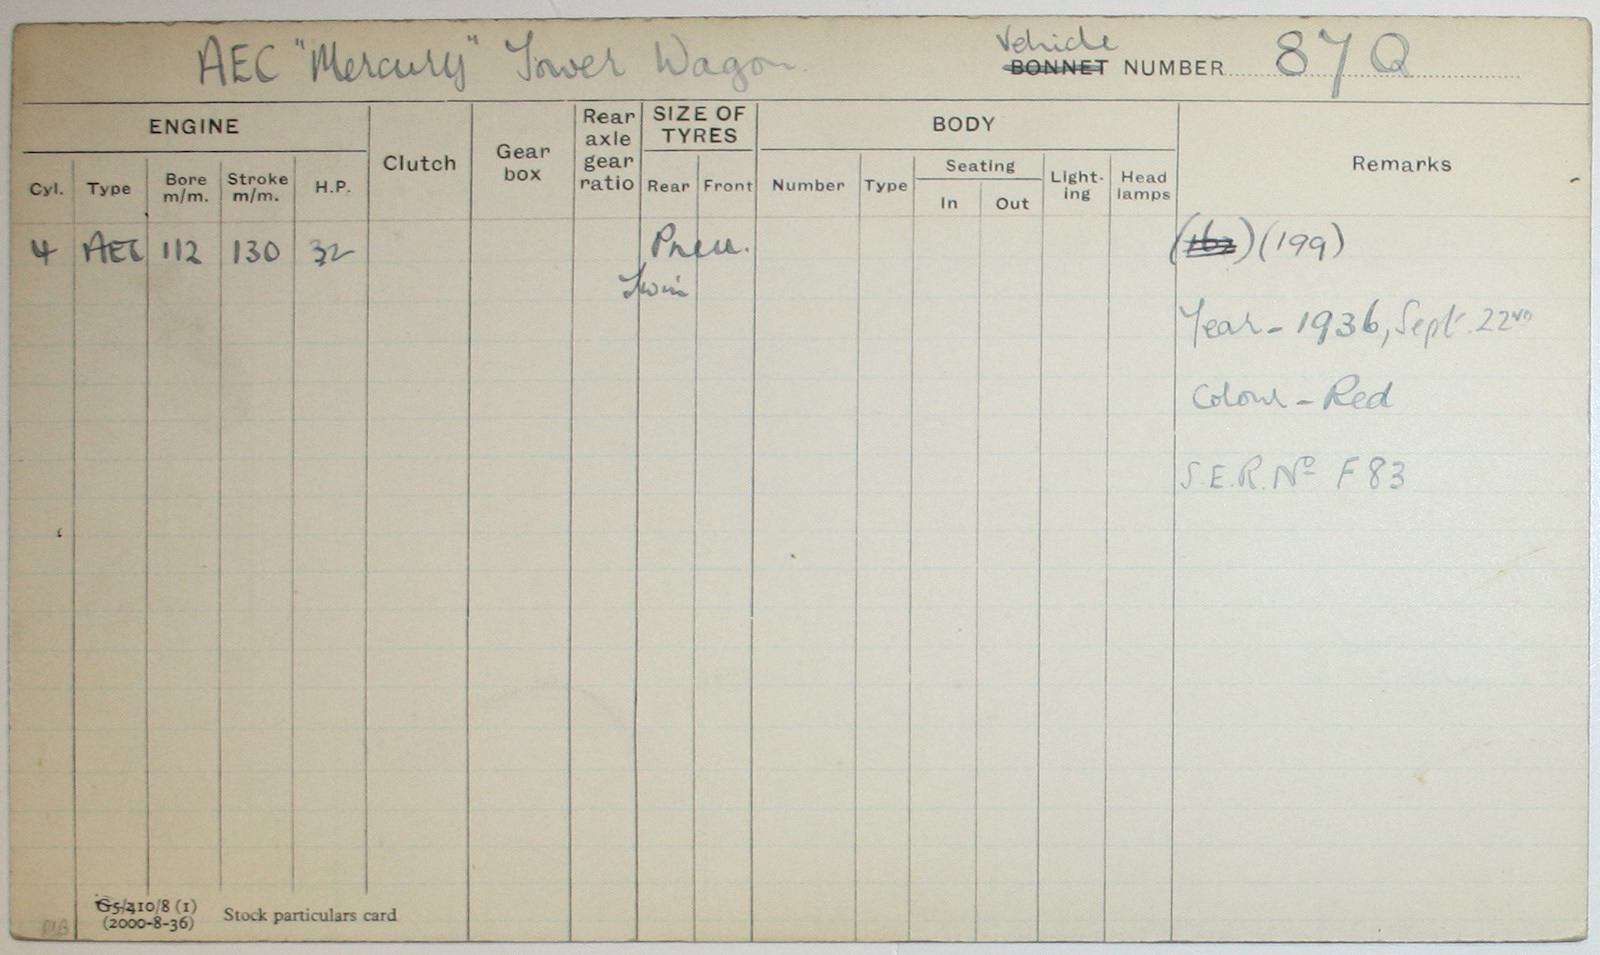 AEC "Mercury" Tower Wagon.
Vehicle
BONNET NUMBER 87Q
ENGINE
Clutch
Gear box
Rear axle gear ratio
SIZE OF TYRES
BODY
Remarks
Cyl. Type Bore m/m. Stroke m/m. H.P.
Rear Front
Number Type Seating In Out Light-ing Head lamps
4 AEC 112 130 32 Pneu. (162) (199)
Twin
Year - 1936, Sept. 22ND
Colour - Red
S.E.R. No F83
G5/410/8 (1)
(2000-8-36)
Stock particulars card